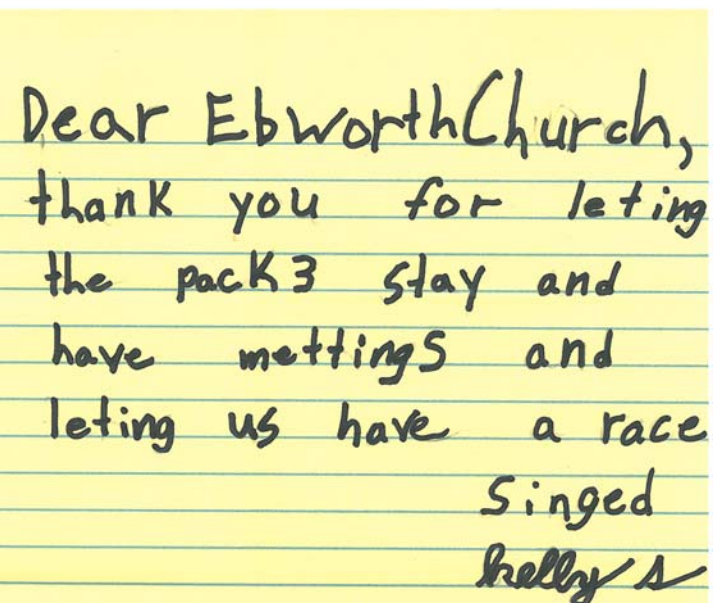 Dear Ebworth Church,
thank you for leting
the pack 3 stay and
have mettings and
leting us have a race
Singed
kelly s